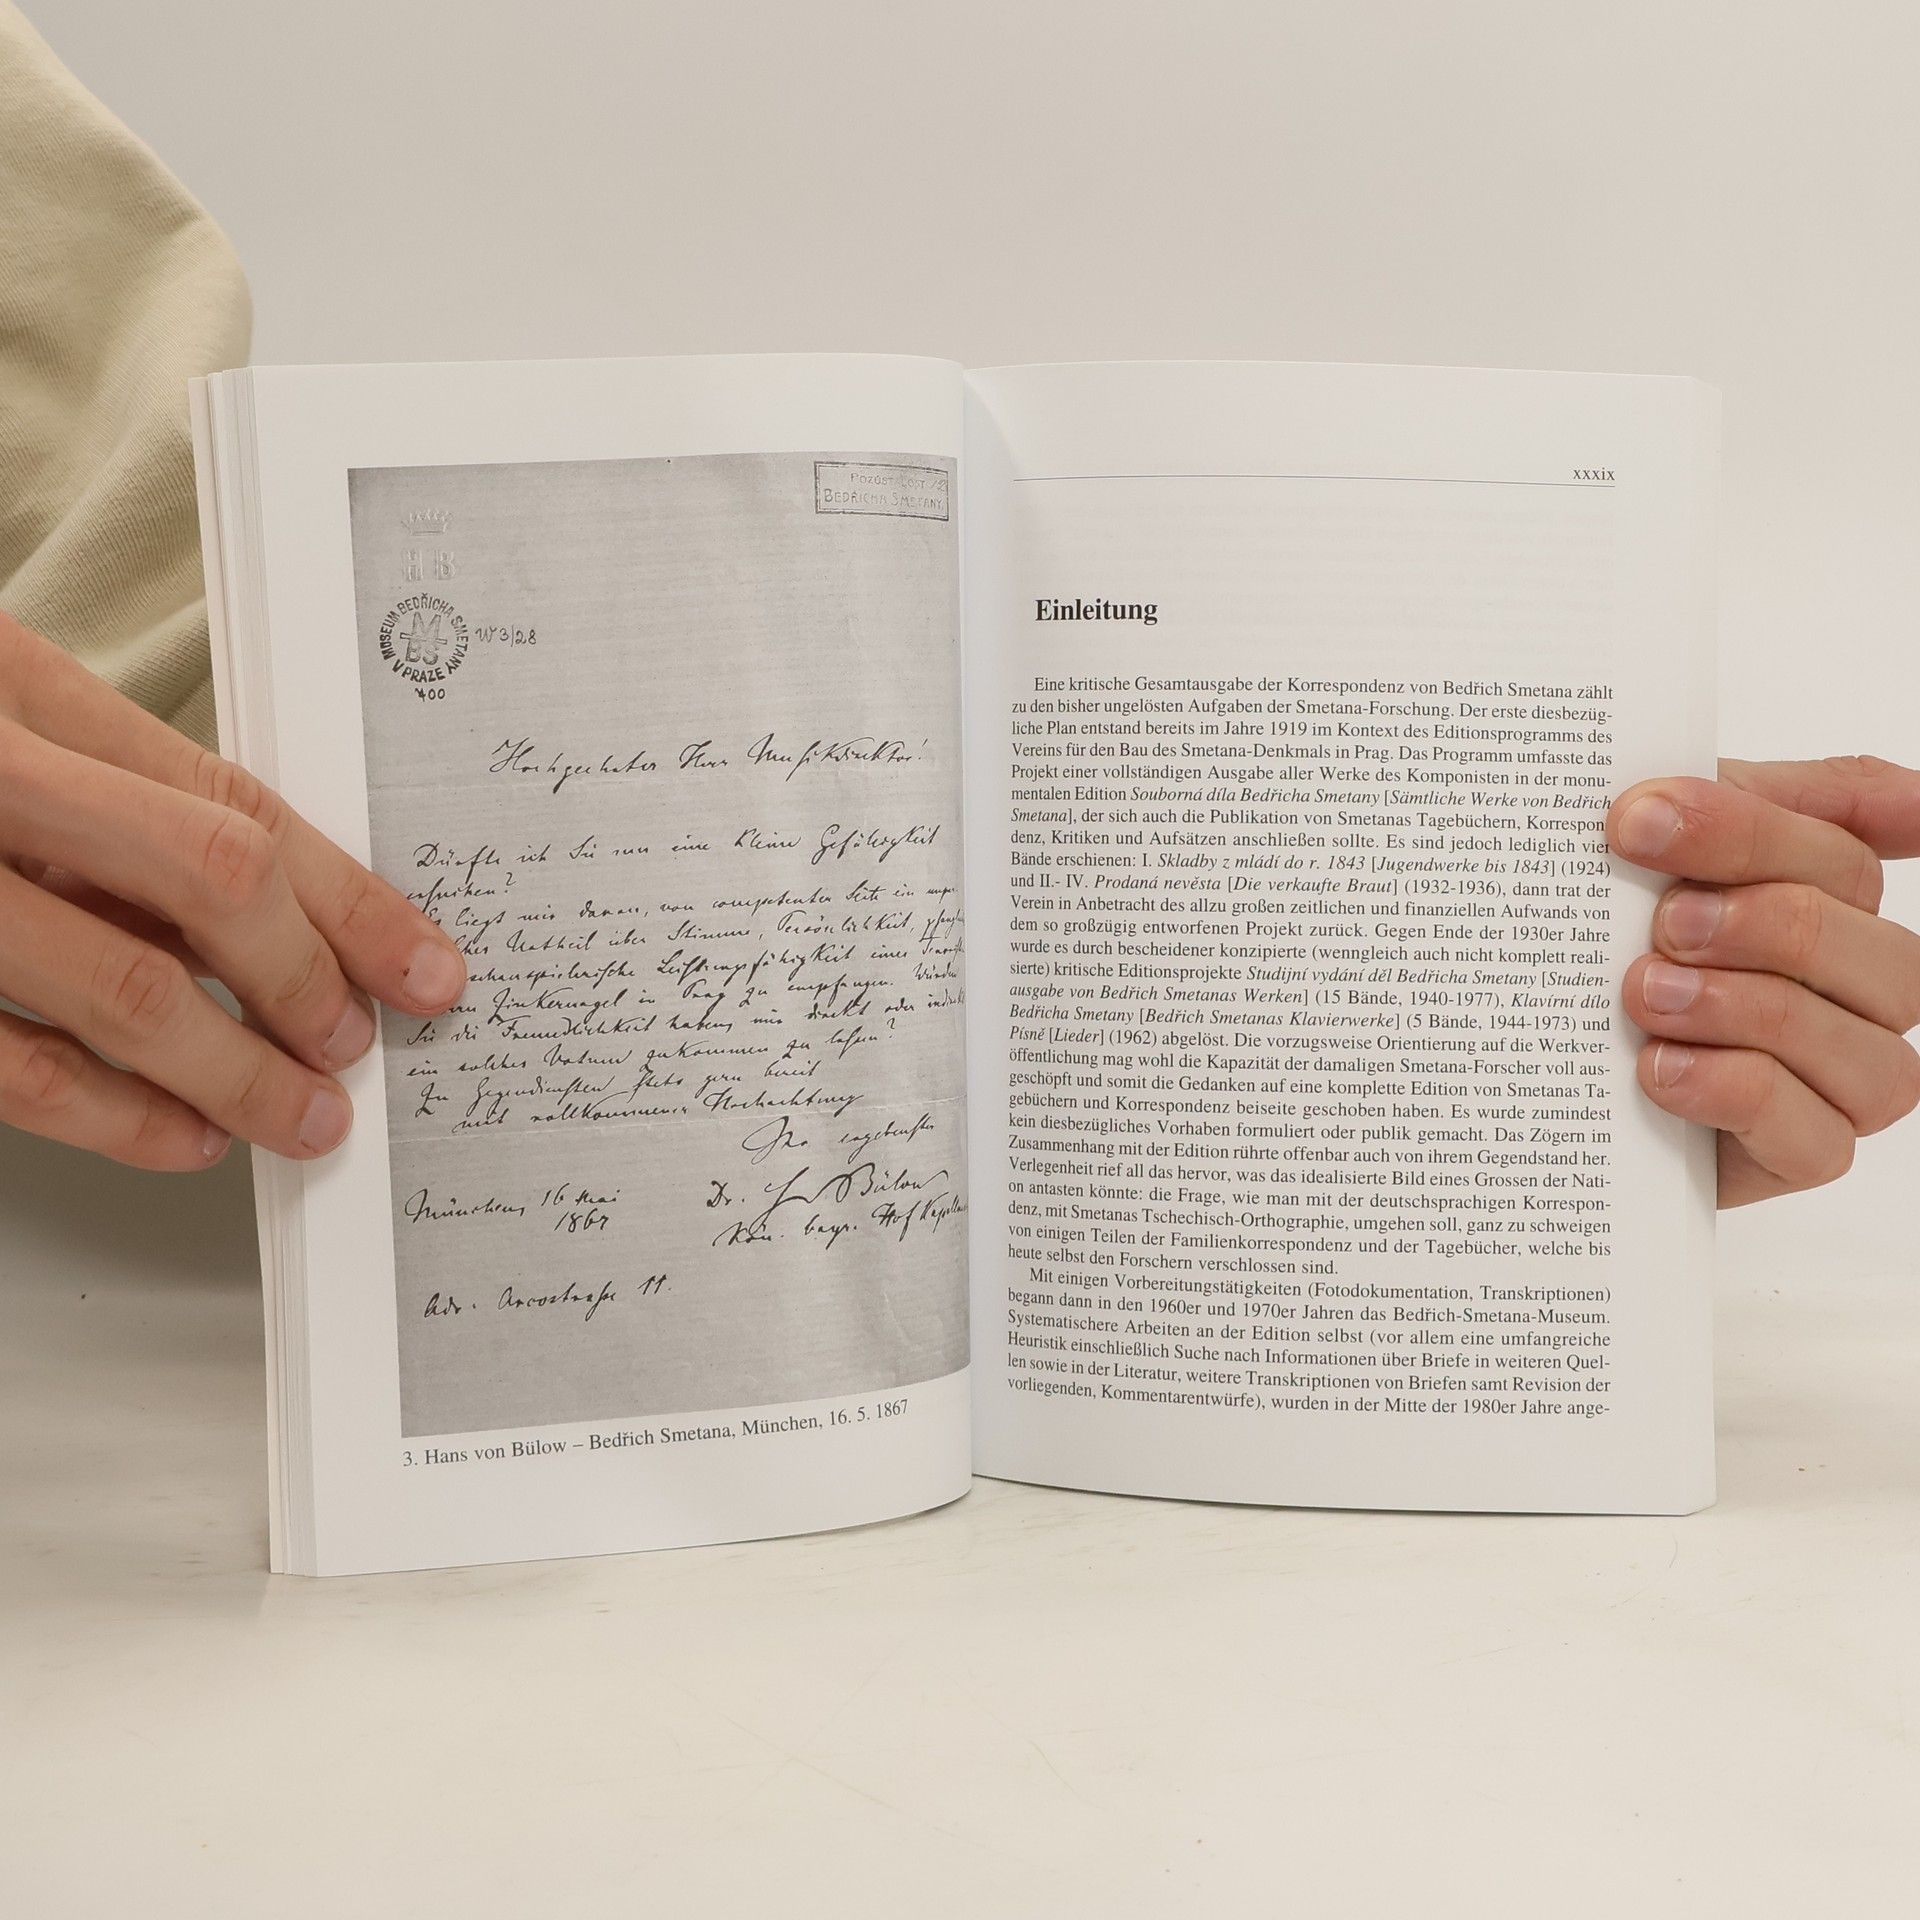 POZŮSTALOST
BEDŘICHA SMETANY
H B
MUSEUM BEDŘICHA SMETANY V PRAZE
M
BS
W 3/28
400
Hochgeehrter Herr Musikdirektor!
Dürfte ich Sie um eine kleine Gefälligkeit
ersuchen?
liegt mir daran, von competenter Seite ein
Urtheil über Stimme, Persönlichkeit,
schauspielerische Leistungsfähigkeit eines
Zinkernagel in Prag zu empfangen. Würden
Sie die Freundlichkeit haben, mir direkt oder
ein solches Votum zukommen zu lassen?
Zu Gegendiensten stets gern bereit
mit vollkommener Hochachtung
Ihr ergebenster
Dr. H v Bülow
München, 16 Mai
1867
Kön. bayr.
Adr. Arcostraße 11.
3. Hans von Bülow – Bedřich Smetana, München, 16. 5. 1867
xxxix
Einleitung
Eine kritische Gesamtausgabe der Korrespondenz von Bedřich Smetana zählt
zu den bisher ungelösten Aufgaben der Smetana-Forschung. Der erste diesbezüg-
liche Plan entstand bereits im Jahre 1919 im Kontext des Editionsprogramms des
Vereins für den Bau des Smetana-Denkmals in Prag. Das Programm umfasste das
Projekt einer vollständigen Ausgabe aller Werke des Komponisten in der monu-
mentalen Edition Souborná díla Bedřicha Smetany [Sämtliche Werke von Bedřich
Smetana], der sich auch die Publikation von Smetanas Tagebüchern, Korrespon
denz, Kritiken und Aufsätzen anschließen sollte. Es sind jedoch lediglich vier
Bände erschienen: I. Skladby z mládí do r. 1843 [Jugendwerke bis 1843] (1924)
und II.- IV. Prodaná nevěsta [Die verkaufte Braut] (1932-1936), dann trat der
Verein in Anbetracht des allzu großen zeitlichen und finanziellen Aufwands von
dem so großzügig entworfenen Projekt zurück. Gegen Ende der 1930er Jahre
wurde es durch bescheidener konzipierte (wenngleich auch nicht komplett reali-
sierte) kritische Editionsprojekte Studijní vydání děl Bedřicha Smetany [Studien-
ausgabe von Bedřich Smetanas Werken] (15 Bände, 1940-1977), Klavírní dílo
Bedřicha Smetany [Bedřich Smetanas Klavierwerke] (5 Bände, 1944-1973) und
Písně [Lieder] (1962) abgelöst. Die vorzugsweise Orientierung auf die Werkver-
öffentlichung mag wohl die Kapazität der damaligen Smetana-Forscher voll aus-
geschöpft und somit die Gedanken auf eine komplette Edition von Smetanas Ta-
gebüchern und Korrespondenz beiseite geschoben haben. Es wurde zumindest
kein diesbezügliches Vorhaben formuliert oder publik gemacht. Das Zögern im
Zusammenhang mit der Edition rührte offenbar auch von ihrem Gegenstand her.
Verlegenheit rief all das hervor, was das idealisierte Bild eines Grossen der Nati-
on antasten könnte: die Frage, wie man mit der deutschsprachigen Korrespon-
denz, mit Smetanas Tschechisch-Orthographie, umgehen soll, ganz zu schweigen
von einigen Teilen der Familienkorrespondenz und der Tagebücher, welche bis
heute selbst den Forschern verschlossen sind.
Mit einigen Vorbereitungstätigkeiten (Fotodokumentation, Transkriptionen)
begann dann in den 1960er und 1970er Jahren das Bedřich-Smetana-Museum.
Systematischere Arbeiten an der Edition selbst (vor allem eine umfangreiche
Heuristik einschließlich Suche nach Informationen über Briefe in weiteren Quel-
len sowie in der Literatur, weitere Transkriptionen von Briefen samt Revision der
vorliegenden, Kommentarentwürfe), wurden in der Mitte der 1980er Jahre ange-